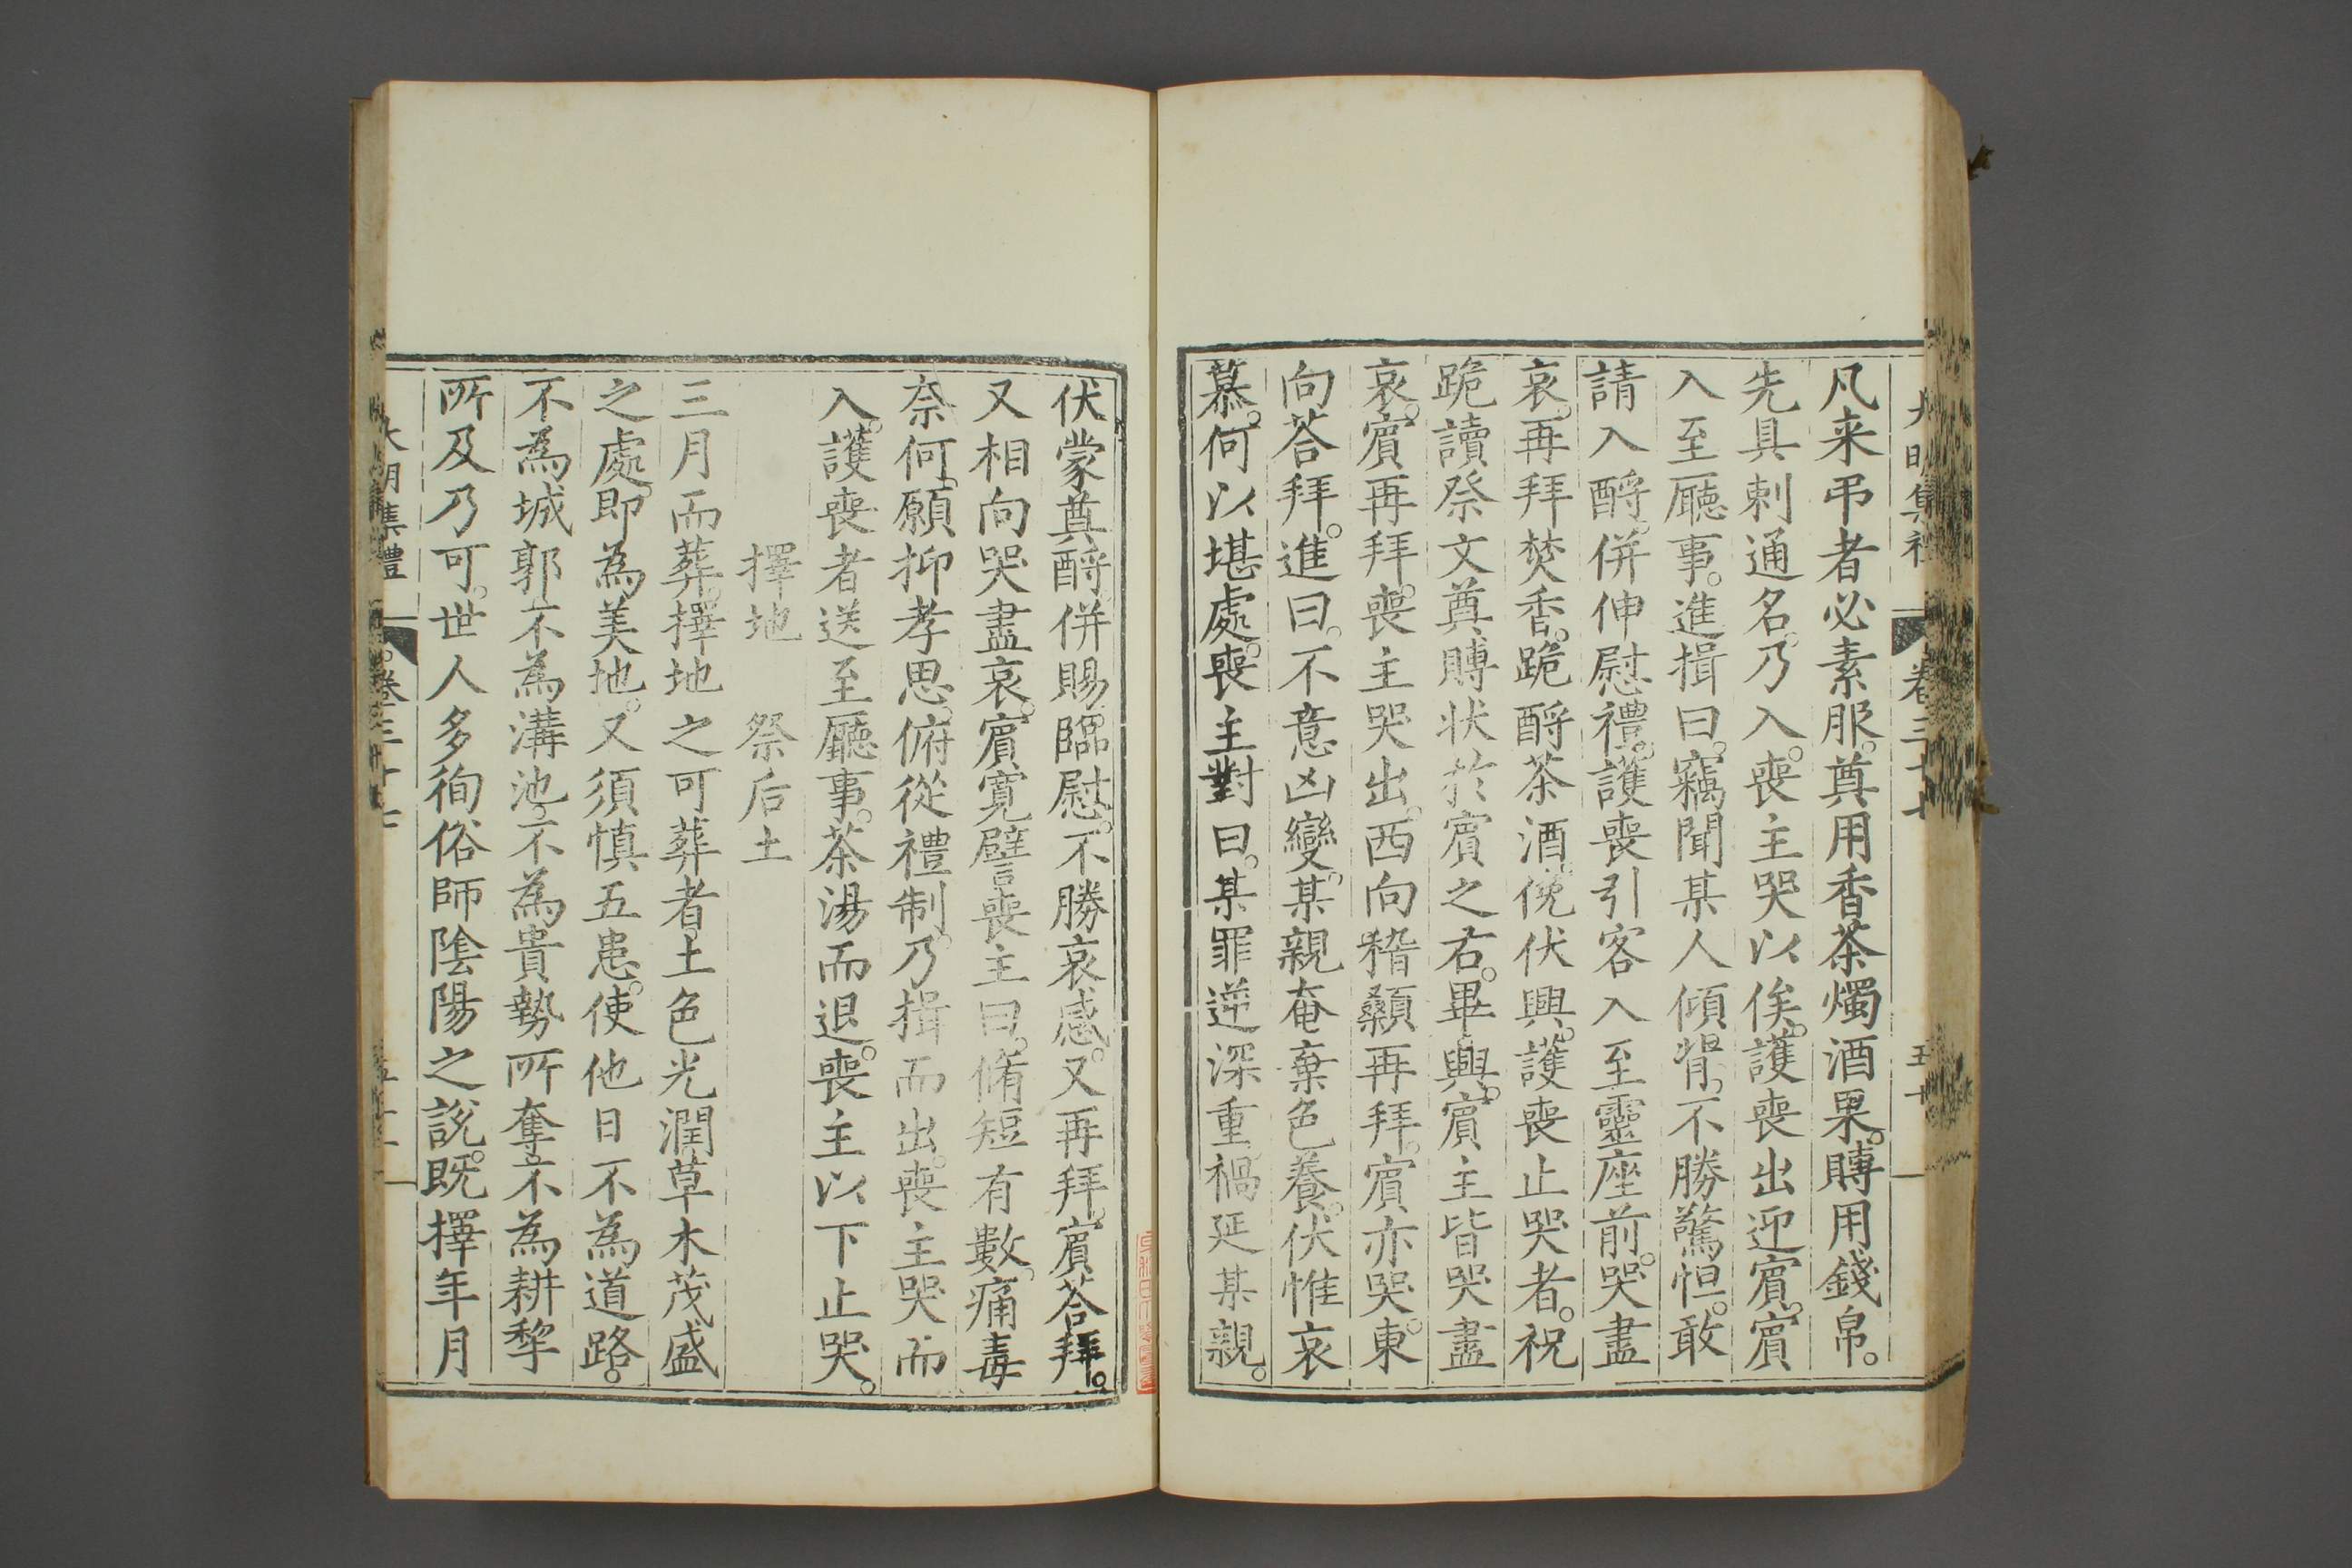 大明集禮 卷三十七 五十
凡来弔者必素服。奠用香茶燭酒果。賻用錢帛。
先具刺通名。乃入。喪主哭以俟。護喪出迎賓。賓
入至廳事。進揖曰。竊聞某人傾背。不勝驚怛。敢
請入酹。併伸慰禮。護喪引客入至靈座前。哭盡
哀。再拜焚香。跪酹茶酒。俛伏興。護喪止哭者。祝
跪讀祭文奠賻状於賓之右。畢興。賓主皆哭盡
哀。賓再拜。喪主哭出。西向稽顙再拜。賓亦哭。東
向荅拜。進曰。不意凶變。某親奄棄色養。伏惟哀
慕。何以堪處。喪主對曰。某罪逆深重禍延某親。
伏蒙奠酹。併賜臨慰。不勝哀感。又再拜。賓荅拜。
又相向哭盡哀。賓寬譬喪主曰。脩短有數。痛毒
奈何。願抑孝思。俯從禮制。乃揖而出。喪主哭而
入。護喪者送至廳事。茶湯而退。喪主以下止哭。
擇地 祭后土
三月而葬。擇地之可葬者。土色光潤草木茂盛
之處。即為美地。又須慎五患。使他日不為道路。
不為城郭。不為溝池。不為貴勢所奪。不為耕犂
所及乃可。世人多徇俗師陰陽之說。既擇年月
大明集禮 卷三十七